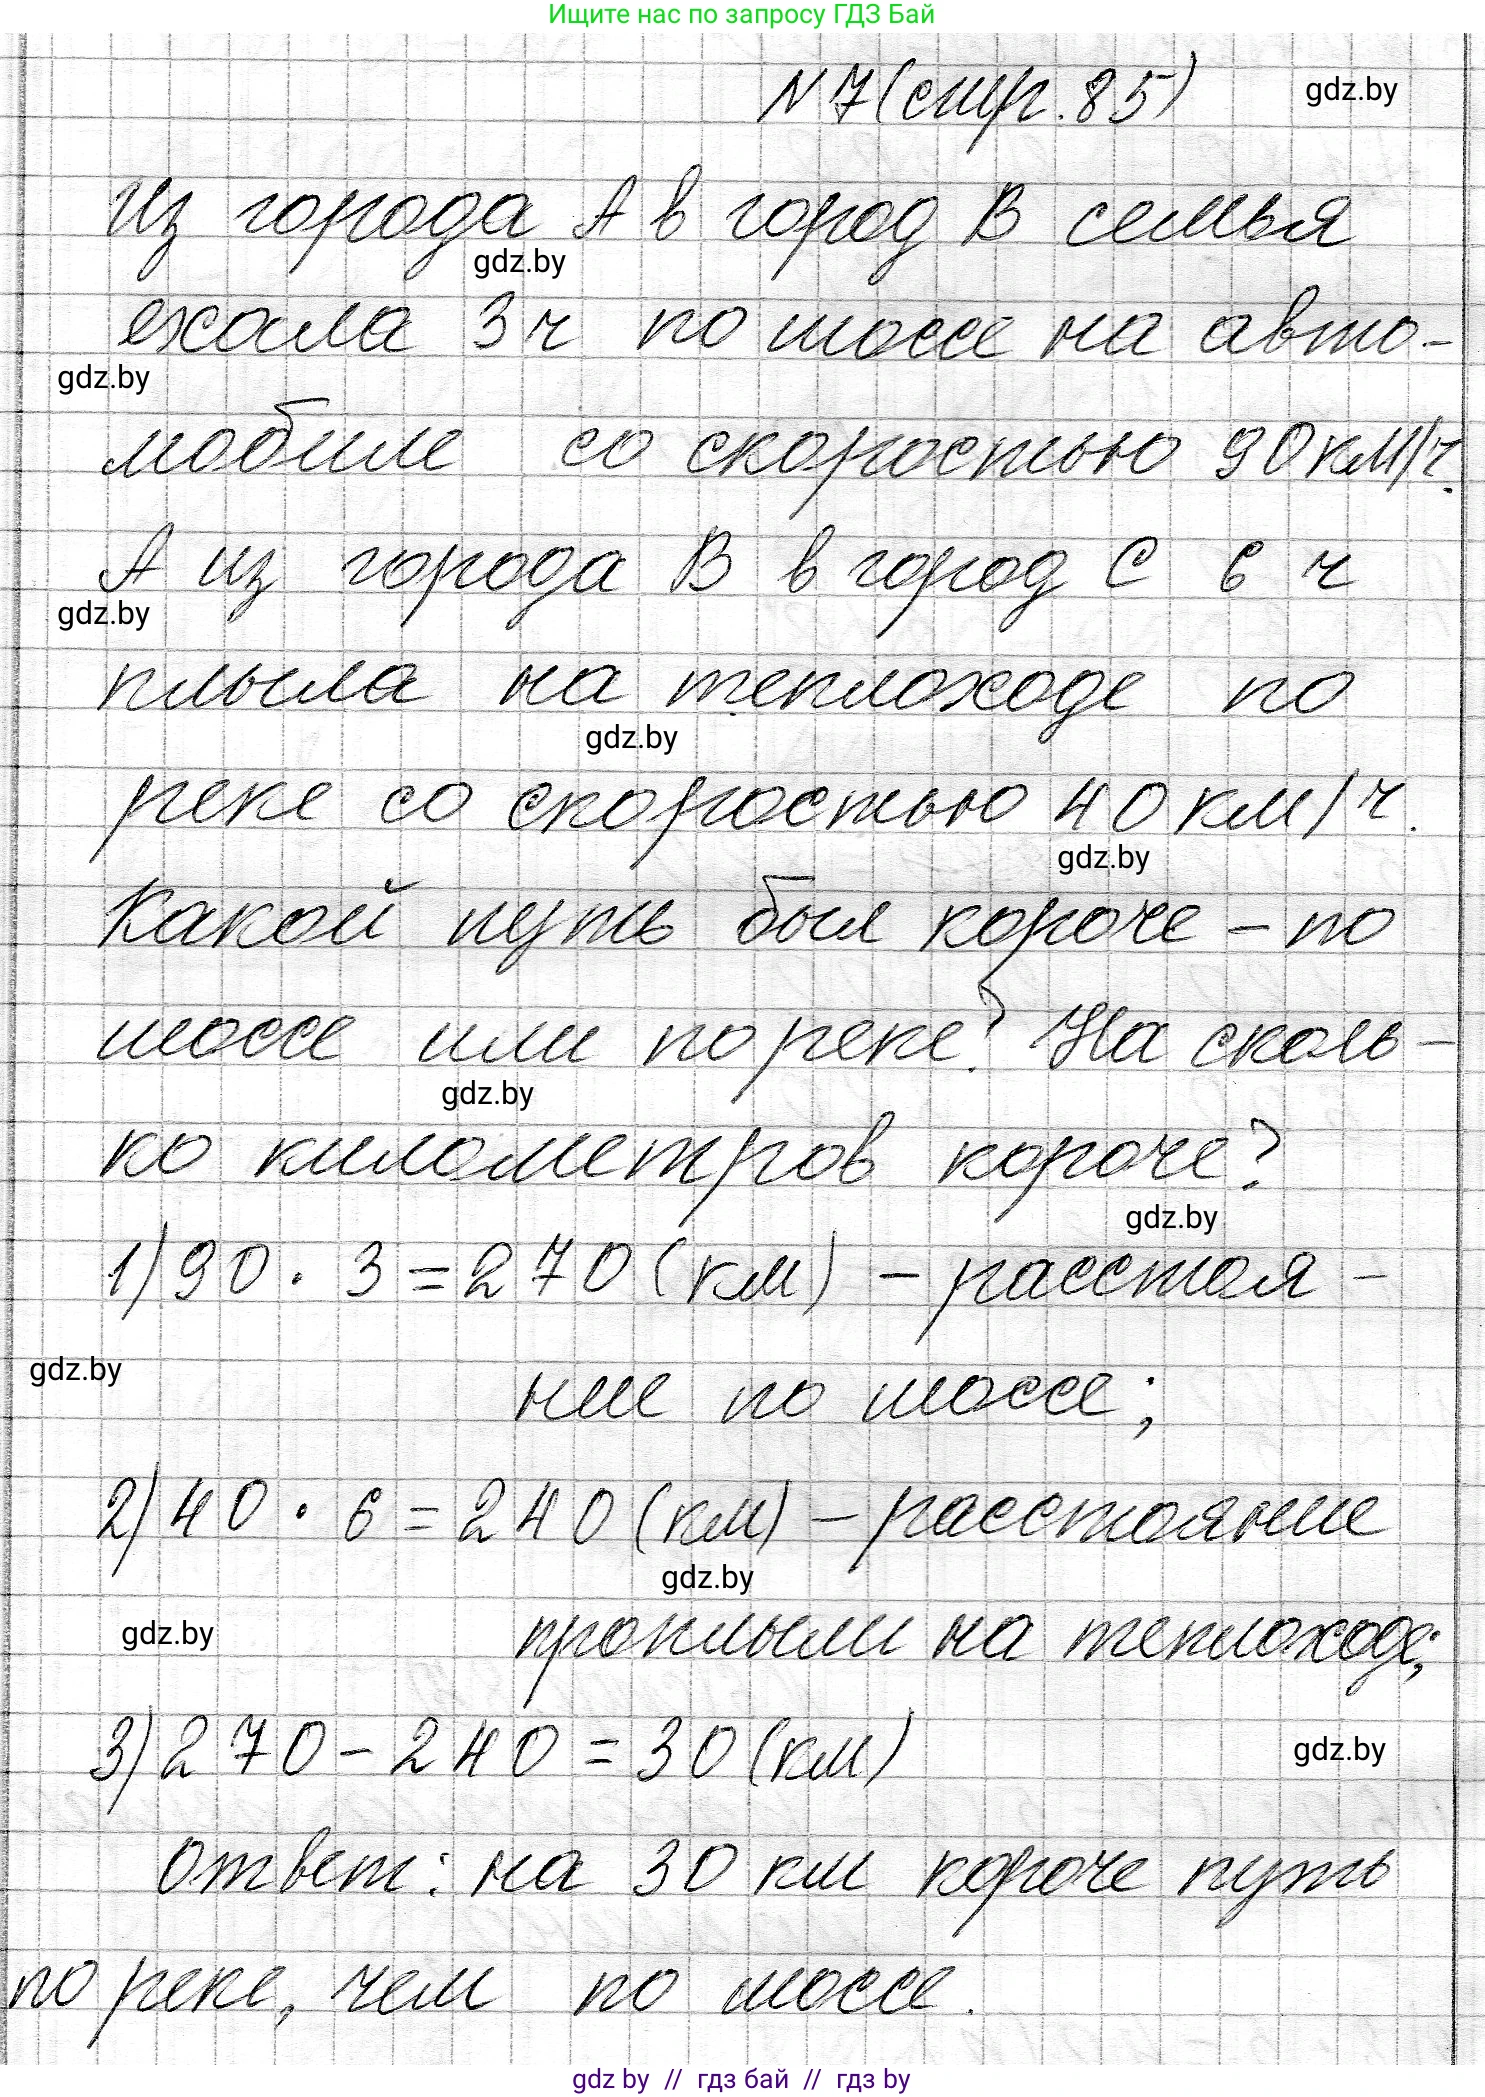 Ищите нас по запросу ГДЗ Бай
N 7 (стр. 85)
gdz.by
Из города А в город В семья
gdz.by
ехала 3 ч по шоссе на авто-
gdz.by
мобиле со скоростью 90 км/ч.
А из города В в город С 6 ч
gdz.by
плыла на теплоходе по
gdz.by
реке со скоростью 40 км/ч.
gdz.by
Какой путь был короче - по
шоссе или по реке? На сколь-
gdz.by
ко километров короче?
gdz.by
1) 90 · 3 = 270 (км) - расстоя-
gdz.by
ние по шоссе;
2) 40 · 6 = 240 (км) - расстояние
gdz.by
gdz.by
проплыли на теплоходе;
3) 270 - 240 = 30 (км)
gdz.by
Ответ: на 30 км короче путь
по реке, чем по шоссе.
gdz by // гдз бай // гдз by